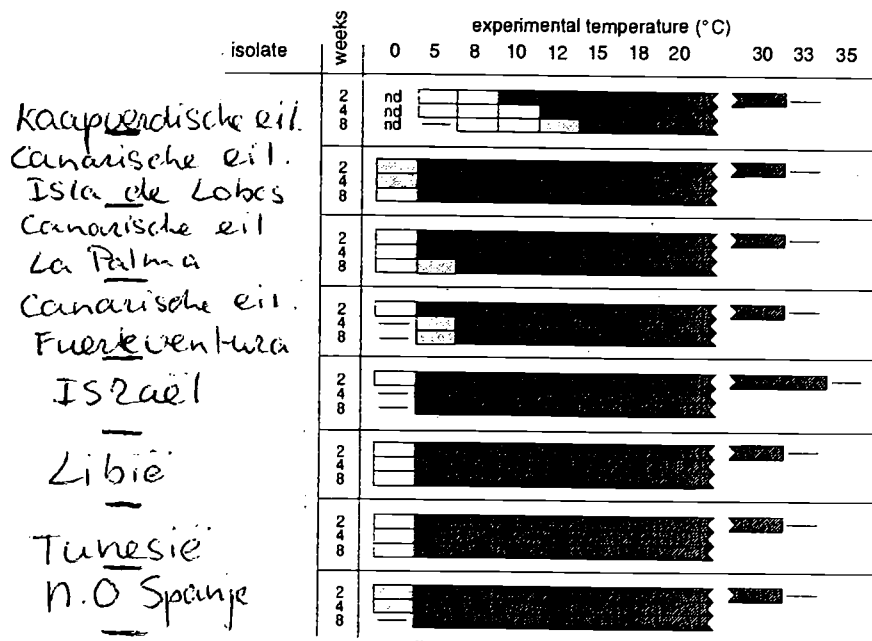 experimental temperature (°C)
isolate weeks 0 5 8 10 12 15 18 20 30 33 35
Kaapverdische eil.
2 nd
4 nd
8 nd
Canarische eil.
Isla de Lobos
2
4
8
Canarische eil
La Palma
2
4
8
Canarische eil.
Fuerteventura
2
4
8
ISRaël
2
4
8
Libië
2
4
8
Tunesië
2
4
8
N.O Spanje
2
4
8